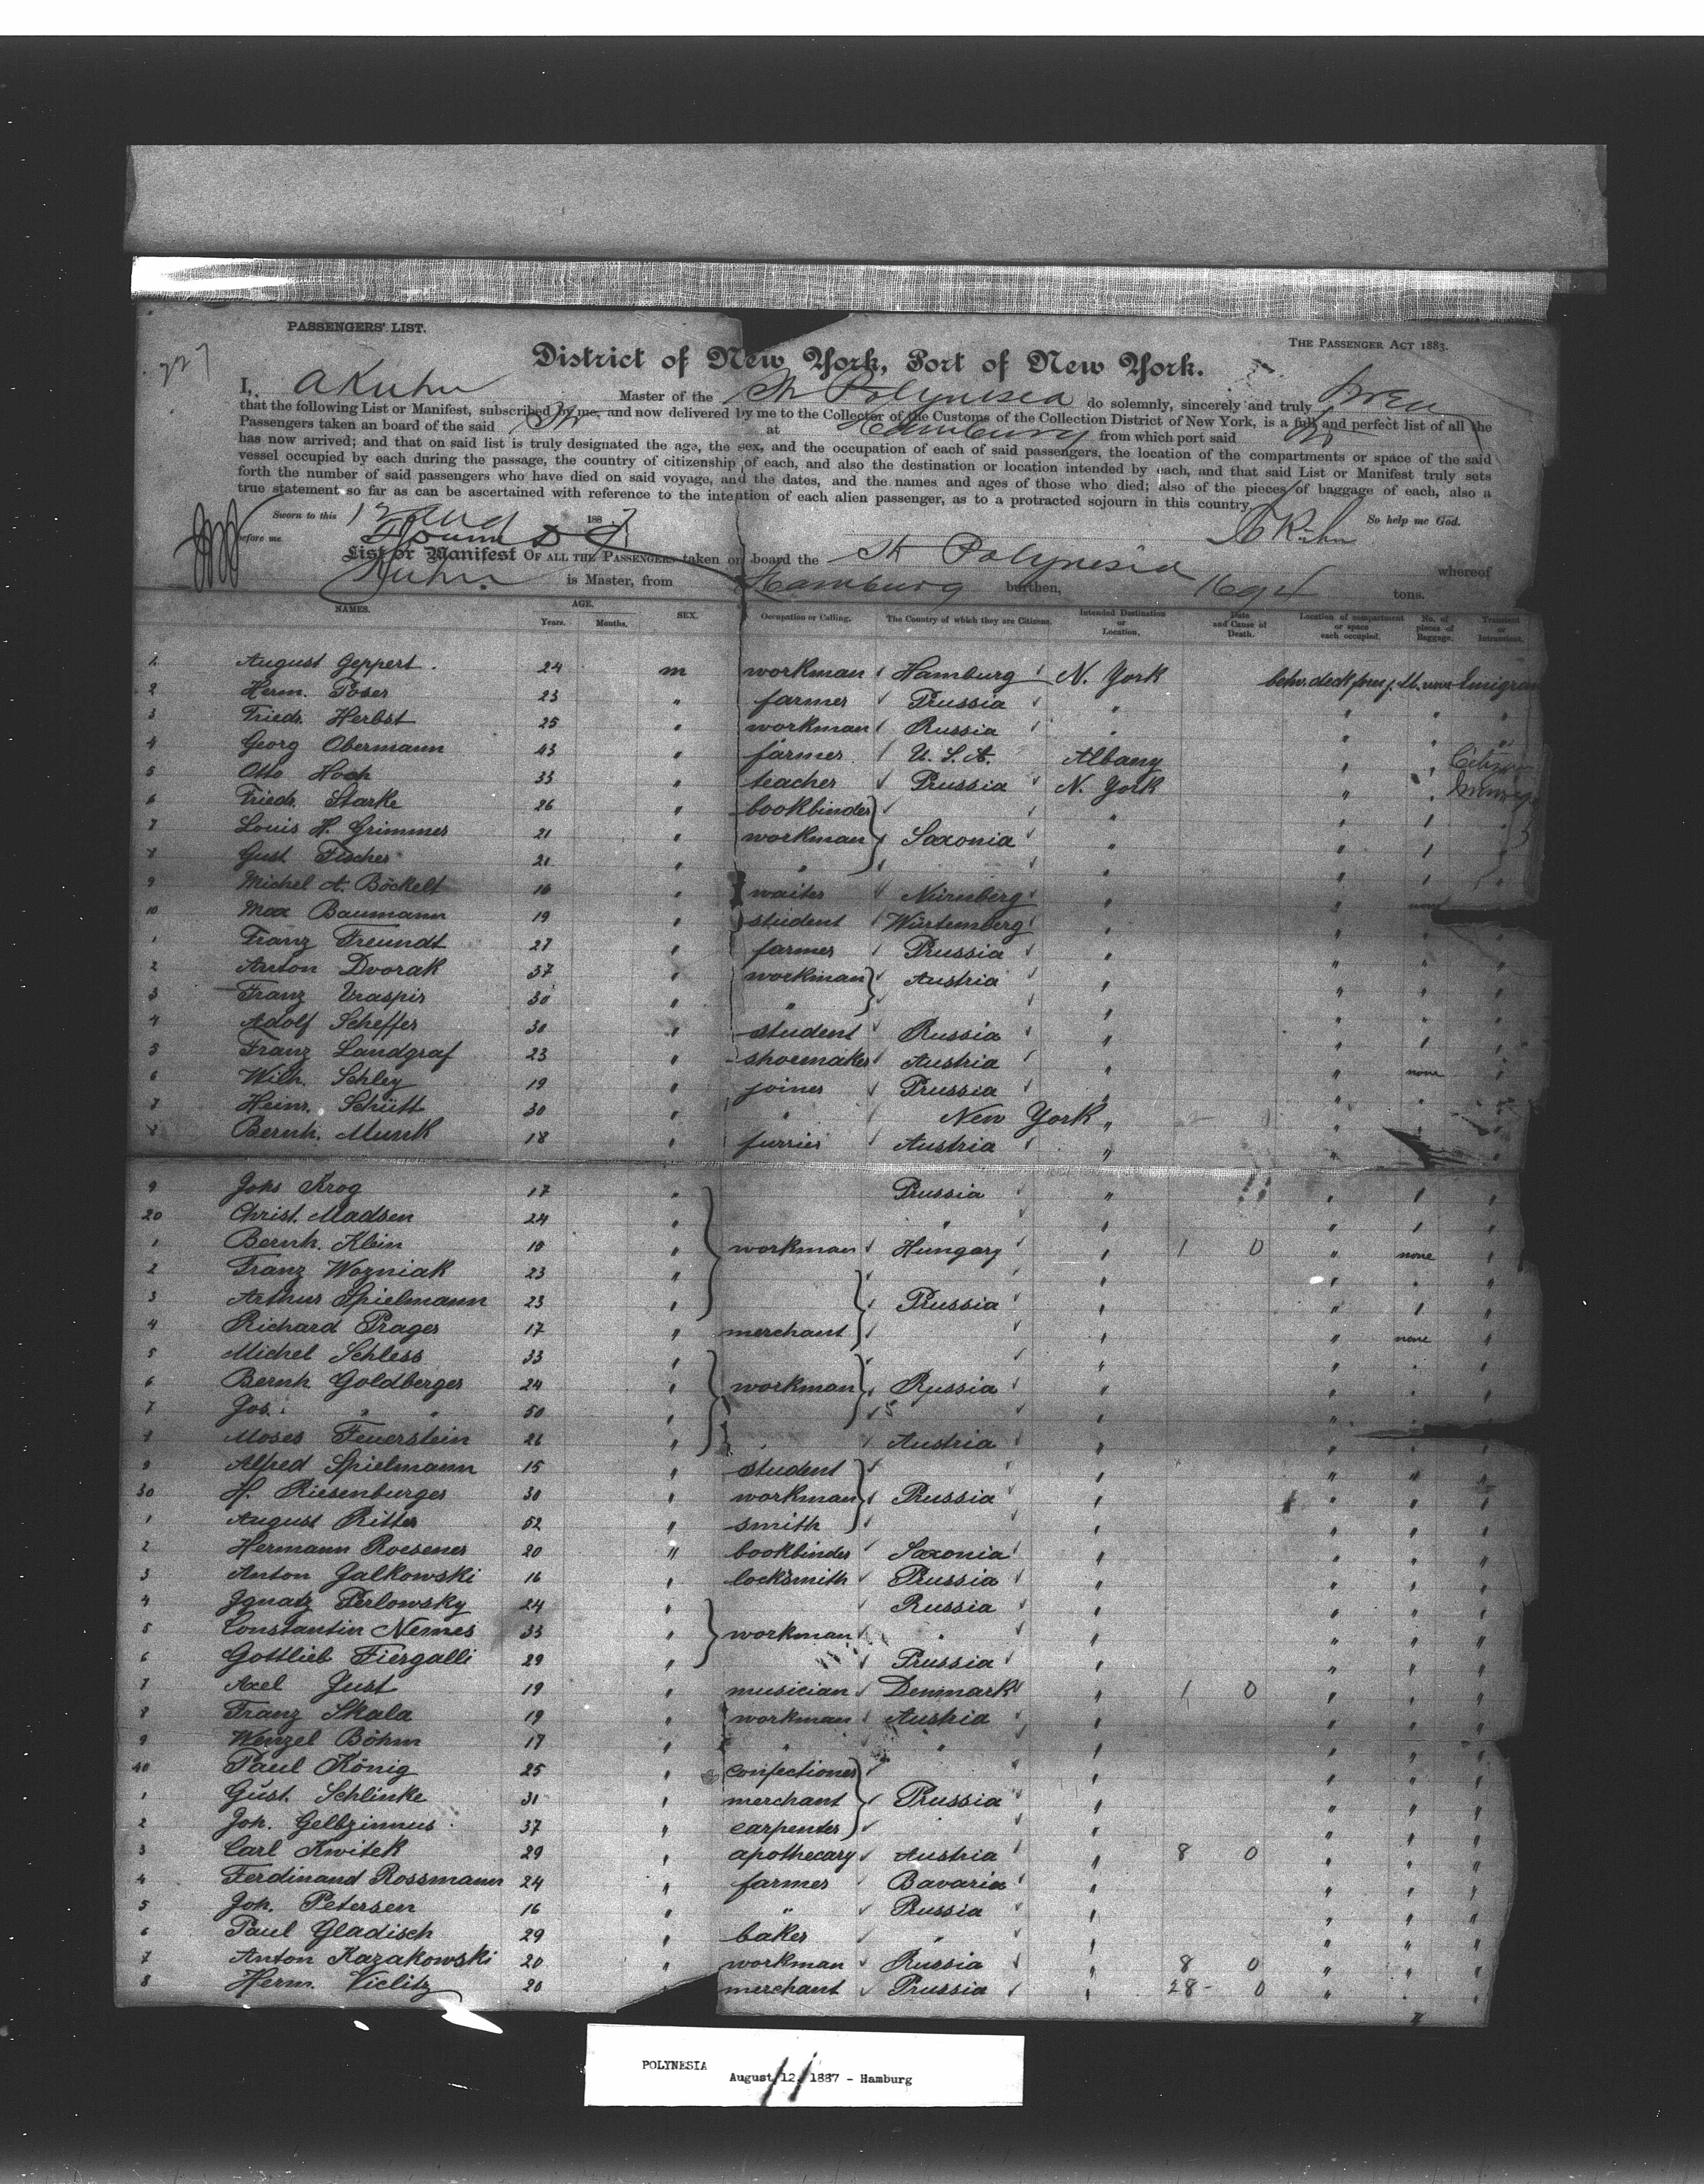 PASSENGERS' LIST.
THE PASSENGER ACT 1883.
227
District of New York, Port of New York.
I, A Kuhn Master of the Str Polynesia do solemnly, sincerely and truly swear
that the following List or Manifest, subscribed by me, and now delivered by me to the Collector of the Customs of the Collection District of New York, is a full and perfect list of all the
Passengers taken on board of the said Str at Hamburg from which port said Str
has now arrived; and that on said list is truly designated the age, the sex, and the occupation of each of said passengers, the location of the compartments or space of the said
vessel occupied by each during the passage, the country of citizenship of each, and also the destination or location intended by each, and that said List or Manifest truly sets
forth the number of said passengers who have died on said voyage, and the dates, and the names and ages of those who died; also of the pieces of baggage of each, also a
true statement so far as can be ascertained with reference to the intention of each alien passenger, as to a protracted sojourn in this country.
Sworn to this 12 Aug 1887 A Kuhn So help me God.
before me
List or Manifest OF ALL THE PASSENGERS taken on board the Str Polynesia whereof
Kuhn is Master, from Hamburg burthen, 1694 tons.
NAMES. AGE. Years. Months. SEX. Occupation or Calling. The Country of which they are Citizens. Intended Destination or Location. Date and Cause of Death. Location of compartment or space each occupied. No. of pieces of Baggage. Transient or Intransient.
1 August Geppert. 24 m workman Hamburg N. York betw. deck Emigran
2 Herm. Poser 23 " farmer Prussia " " " "
3 Friedr. Herbst 25 " workman Russia " " " "
4 Georg Obermann 43 " farmer U. S. A. Albany " " Citizen
5 Otto Hoch 33 " teacher Prussia N. York " "
6 Friedr. Starke 26 " bookbinder " " 1 "
7 Louis H. Grimmer 21 " workman Saxonia " " 1 "
8 Gust Fischer 21 " " " " 1 "
9 Michel A. Böckelt 16 " waiter Nürnberg " " none "
10 Max Baumann 19 " student Würtemberg " " " "
1 Franz Freundt 27 " farmer Prussia " " " "
2 Anton Dvorak 37 " workman Austria " " " "
3 Franz Vraspir 30 " " " " " "
4 Adolf Scheffer 30 " student Russia " " 1 "
5 Franz Landgraf 23 " shoemaker Austria " " none "
6 Wilh. Schley 19 " joiner Prussia " " " "
7 Heinr. Schütt 30 " " New York " " " "
8 Bernh. Munk 18 " furrier Austria " " "
9 Johs Krog 17 " Prussia " " 1 "
20 Christ. Madsen 24 " " " " 1 "
1 Bernh. Klein 18 " workman Hungary " 1 0 " none "
2 Franz Wozniak 23 " " " " "
3 Arthur Spielmann 23 " Prussia " " 1 "
4 Richard Prager 17 " merchant " " none "
5 Michel Schless 33 " " " " "
6 Bernh Goldberger 24 " workman Russia " " " "
7 Jos. " " 50 " " " " "
8 Moses Feuerstein 26 " " Austria " " " "
9 Alfred Spielmann 15 " student " " " "
30 H. Riesenburger 30 " workman Prussia " " " "
1 August Ritter 52 " smith " " " "
2 Hermann Roesener 20 " bookbinder Saxonia " " " "
3 Anton Galkowski 16 " locksmith Prussia " " " "
4 Ignatz Perlowsky 24 " Russia " " " "
5 Constantin Nemes 33 " workman " " " " "
6 Gottlieb Fiergalli 29 " Prussia " " " "
7 Axel Just 19 " musician Denmark " 1 0 " " "
8 Franz Skala 19 " workman Austria " " " "
9 Wenzel Böhm 17 " " " " " " "
40 Paul König 25 " confectioner " " " "
1 Gust. Schlinke 31 " merchant Prussia " " " "
2 Joh. Gelbzinnus 37 " carpenter " " " "
3 Carl Kwitek 29 " apothecary Austria " 8 0 " " "
4 Ferdinand Rossmann 24 " farmer Bavaria " " " "
5 Joh. Petersen 16 " " Prussia " " " "
6 Paul Gladisch 29 " baker " " " " "
7 Anton Kazakowski 20 " workman Russia " 8 0 " " "
8 Herm. Vielitz 20 " merchant Prussia " 28- 0 " " "
POLYNESIA
August 12, 1887 - Hamburg
11